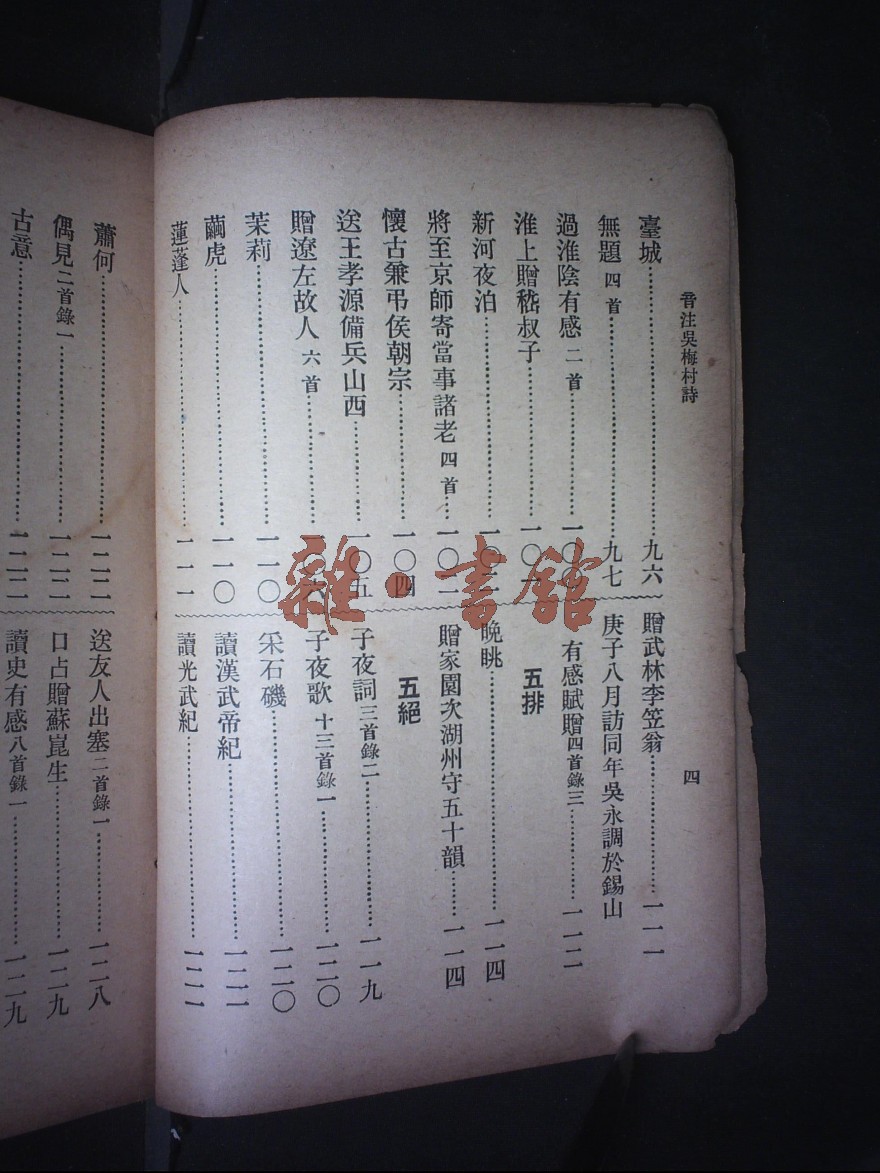 音注吳梅村詩
四
臺城………九六
無題 四首………九七
過淮陰有感 二首………一〇
淮上贈嵇叔子………一〇
新河夜泊………一〇
將至京師寄當事諸老 四首………一〇二
懷古兼弔侯朝宗………一〇四
送王孝源備兵山西………一〇五
贈遼左故人 六首………一〇六
茉莉………一一〇
繭虎………一一〇
蓮蓬人………一一一
贈武林李笠翁………一一一
庚子八月訪同年吳永調於錫山
有感賦贈 四首錄三………一一二
五排
晚眺………一一四
贈家園次湖州守五十韻………一一四
五絕
子夜詞 三首錄二………一一九
子夜歌 十三首錄一………一二〇
采石磯………一二〇
讀漢武帝紀………一二一
讀光武紀………一二一
蕭何………一二二
偶見 二首錄一………一二二
古意………一二二
送友人出塞 二首錄一………一二八
口占贈蘇崑生………一二九
讀史有感 八首錄一………一二九
雜·書館